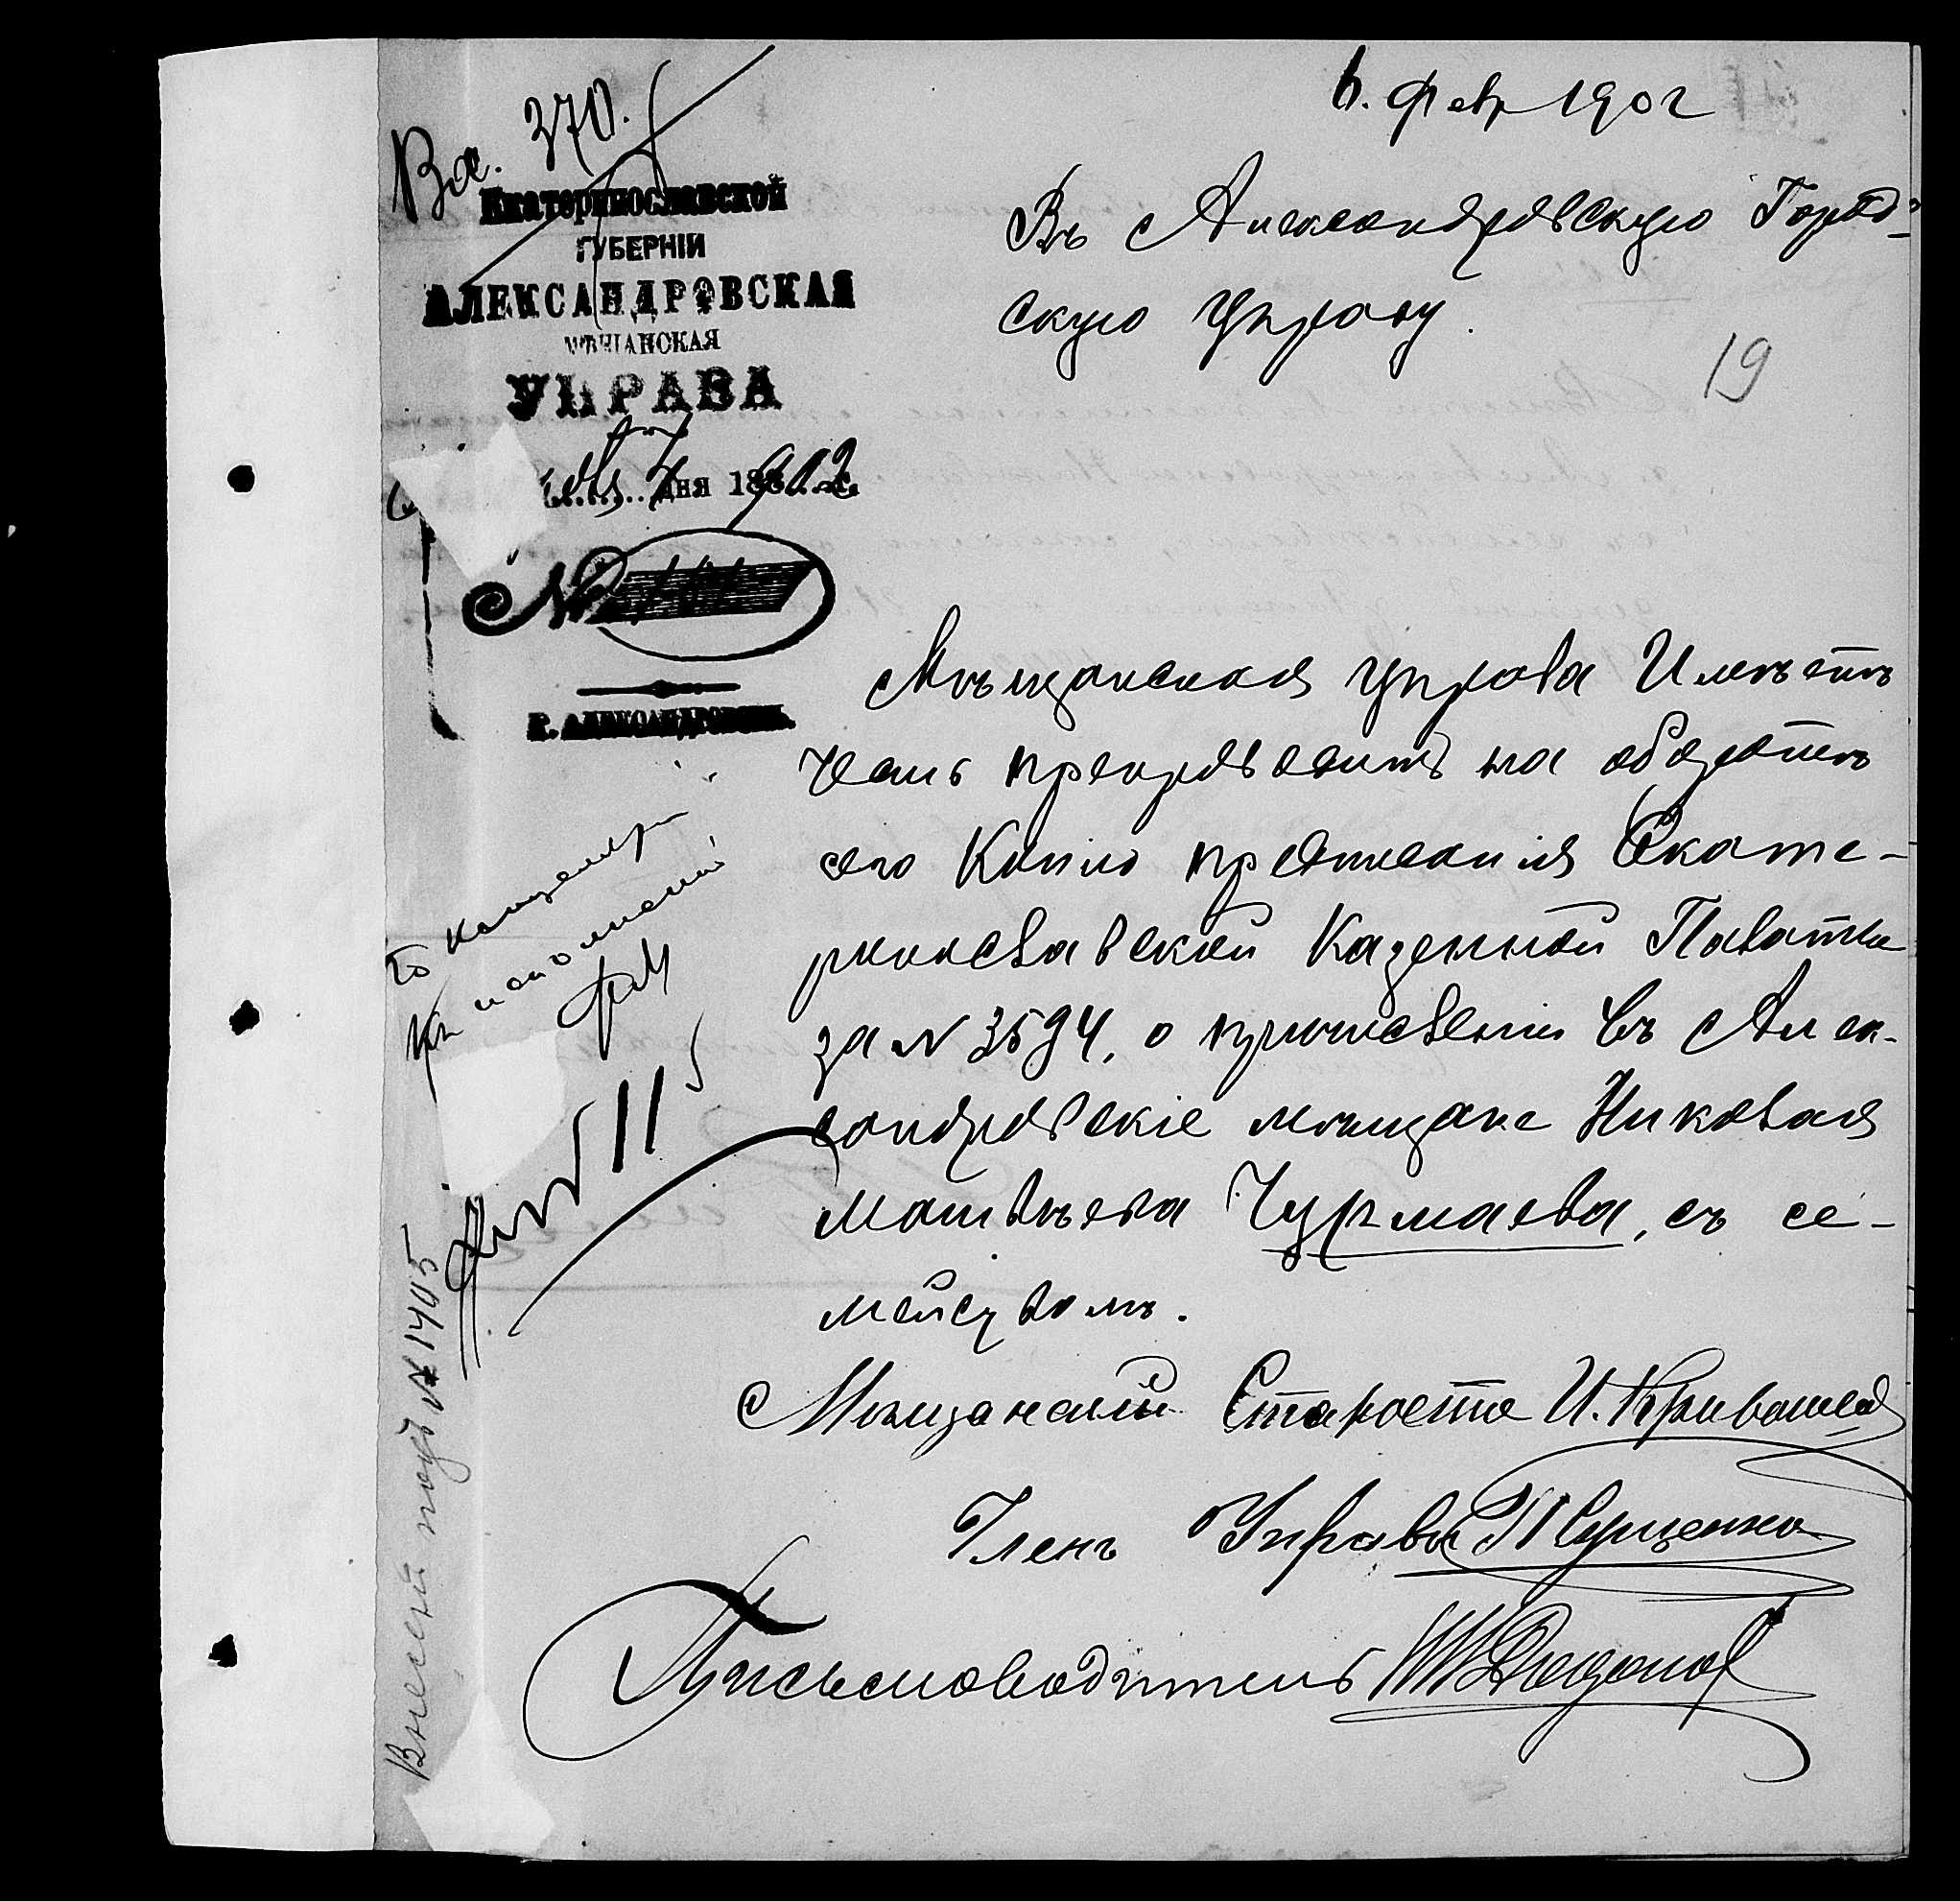 6. Фев 1902
Вх. 370.
Екатеринославской
ГУБЕРНІИ
АЛЕКСАНДРОВСКАЯ
МѢЩАНСКАЯ
УПРАВА
7 дня 1902
№
Г. АЛЕКСАНДРОВСКЪ.
Въ Александровскую Город-
скую Управу.
19
Мѣщанская управа Имѣетъ
честь препроводить на оборотѣ
сего Копію предписанія Екате-
ринославской Казенной Палаты
за № 3594, о причисленіи въ Алек-
сандровскіе мѣщане Николая
Матвѣева Чурмаева, съ се-
мействомъ.
Мѣщанскій Староста И. Кривошея
Членъ Управы
Письмоводитель
Къ исполненію
№ 115
Внесен подъ № 1405